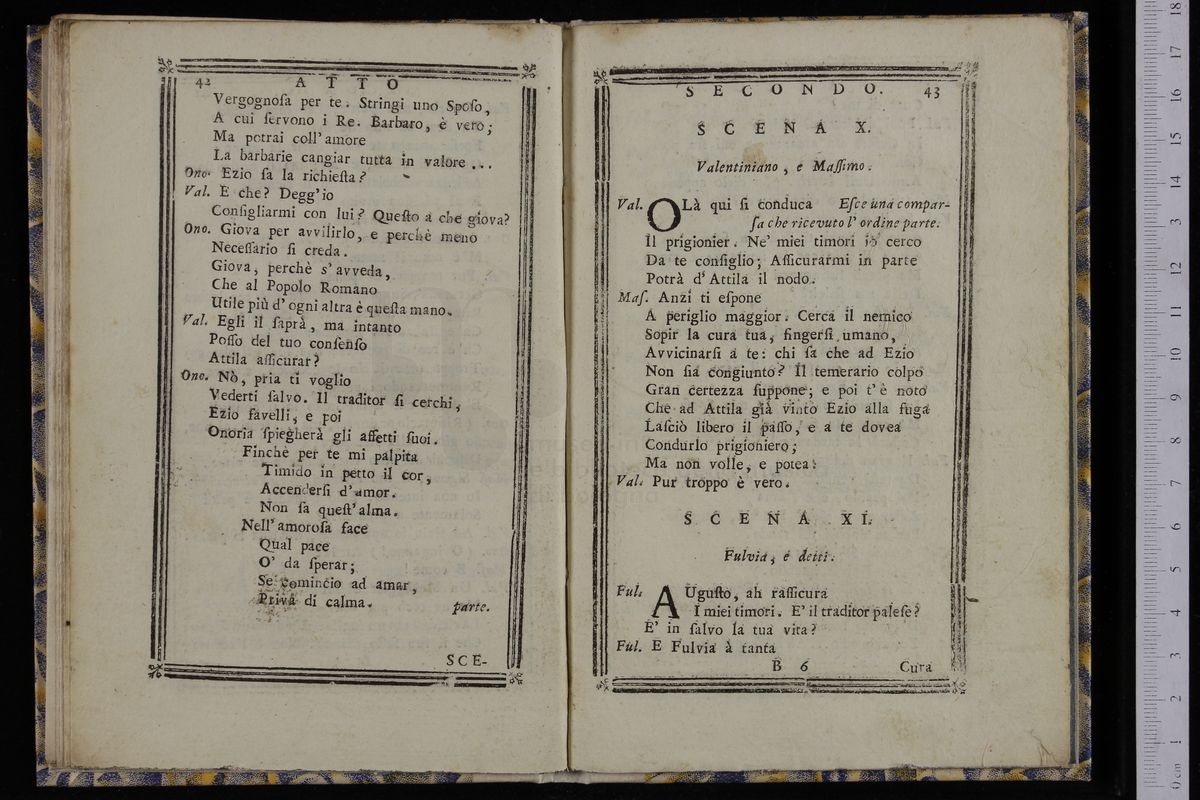 42 ATTO
Vergognoſa per te. Stringi uno Spoſo,
A cui ſervono i Re. Barbaro, è vero;
Ma potrai coll' amore
La barbarie cangiar tutta in valore ...
Ono. Ezio ſa la richieſta?
Val. E che? Degg' io
Conſigliarmi con lui? Queſto a che giova?
Ono. Giova per avvilirlo, e perchè meno
Neceſſario ſi creda.
Giova, perchè s' avveda,
Che al Popolo Romano
Utile più d' ogni altra è queſta mano.
Val. Egli il ſaprà, ma intanto
Poſſo del tuo conſenſo
Attila aſſicurar?
Ono. Nò, pria ti voglio
Vederti ſalvo. Il traditor ſi cerchi,
Ezio favelli, e poi
Onoria ſpiegherà gli affetti ſuoi.
Finchè per te mi palpita
Timido in petto il cor,
Accenderſi d' amor.
Non ſa queſt' alma.
Nell' amoroſa face
Qual pace
O' da ſperar;
Se comincio ad amar,
Priva di calma. parte.
SCE-
SECONDO. 43
SCENA X.
Valentiniano, e Maſſimo.
Val. OLà qui ſi conduca Eſce una compar-
ſa che ricevuto l' ordine parte.
Il prigionier. Ne' miei timori io cerco
Da te conſiglio; Aſſicurarmi in parte
Potrà d' Attila il nodo.
Maſ. Anzi ti eſpone
A periglio maggior. Cerca il nemico
Sopir la cura tua, fingerſi umano,
Avvicinarſi a te: chi ſa che ad Ezio
Non ſia congiunto? Il temerario colpo
Gran certezza ſuppone; e poi t' è noto
Che ad Attila già vinto Ezio alla fuga
Laſciò libero il paſſo, e a te dovea
Condurlo prigioniero;
Ma non volle, e potea.
Val. Pur troppo è vero.
SCENA XI.
Fulvia, e detti.
Ful. AUguſto, ah raſſicura
I miei timori. E' il traditor paleſe?
E' in ſalvo la tua vita?
Ful. E Fulvia à tanta
B 6 Cura
0 cm 1 2 3 4 5 6 7 8 9 10 11 12 13 14 15 16 17 18